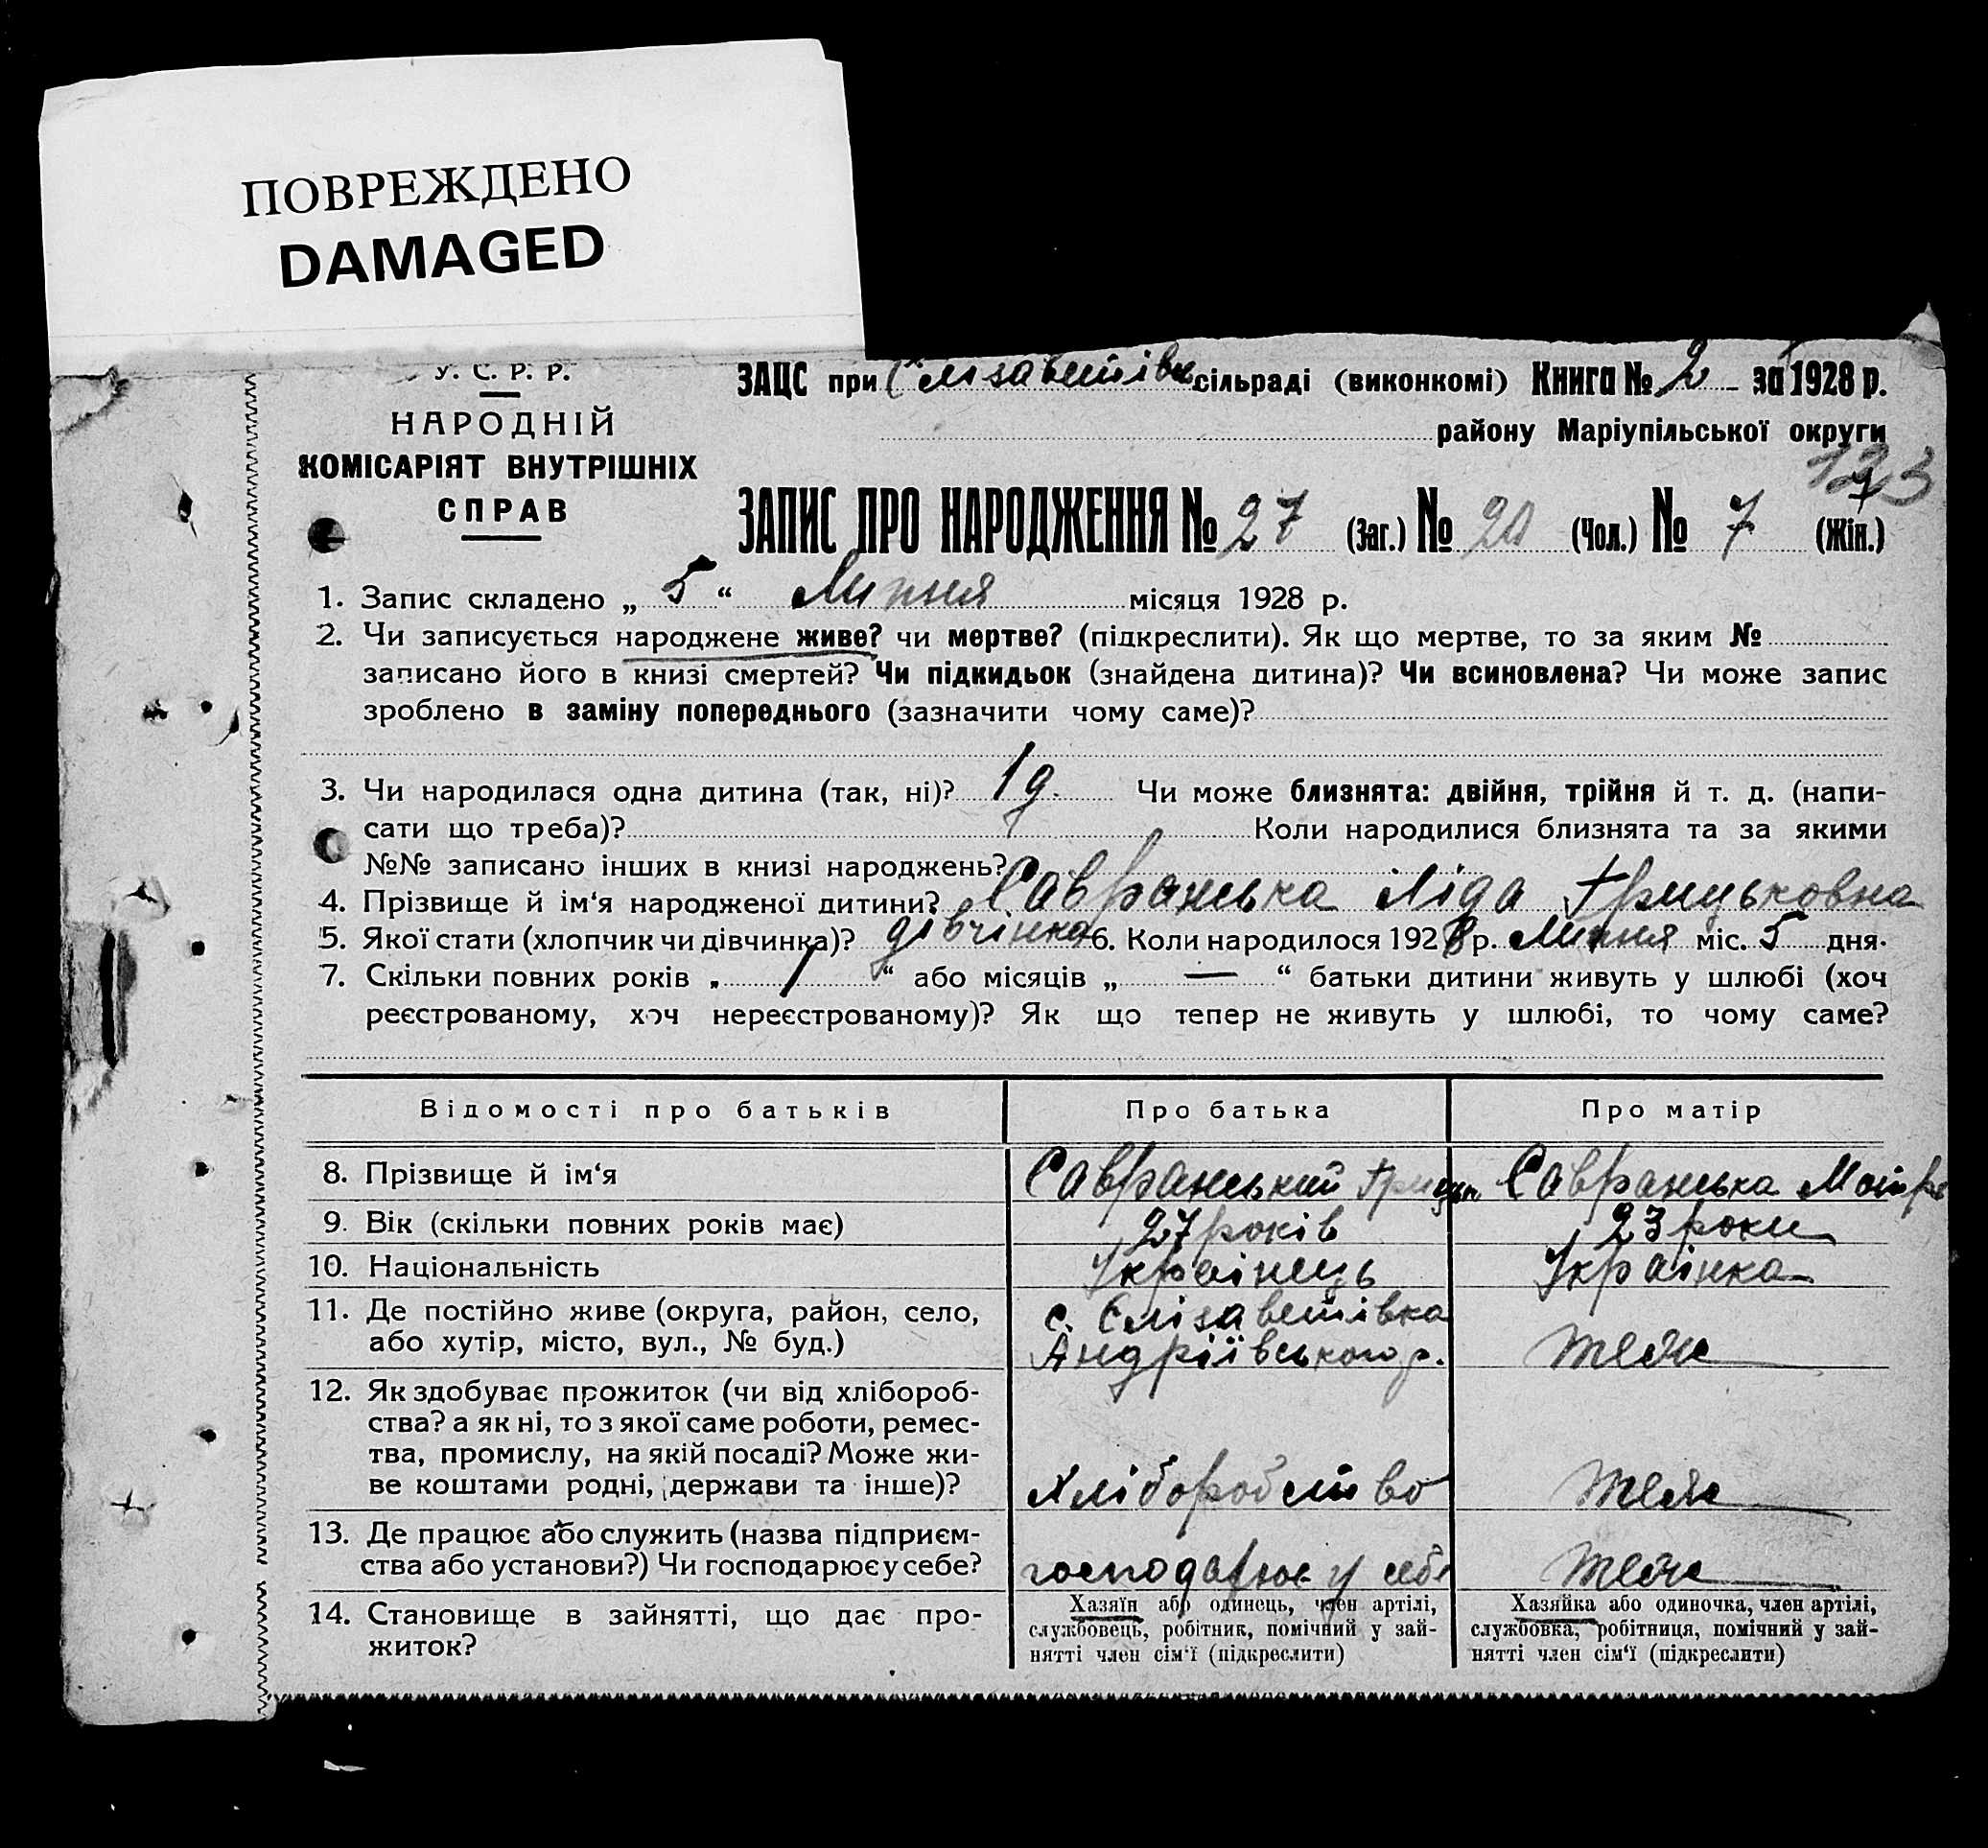 ПОВРЕЖДЕНО
DAMAGED
У. С. Р. Р.
НАРОДНІЙ
КОМІСАРІЯТ ВНУТРІШНІХ
СПРАВ
ЗАЦС при Єлізаветівк сільраді (виконкомі) Книга № 2 за 1928 р.
району Маріупільської округи
123
ЗАПИС ПРО НАРОДЖЕННЯ № 27 (Заг.) № 20 (Чол.) № 7 (Жін.)
1. Запис складено „ 5 “ Липня місяця 1928 р.
2. Чи записується народжене живе? чи мертве? (підкреслити). Як що мертве, то за яким №
записано його в книзі смертей? Чи підкидьок (знайдена дитина)? Чи всиновлена? Чи може запис
зроблено в заміну попереднього (зазначити чому саме)?
3. Чи народилася одна дитина (так, ні)? 1 д. Чи може близнята: двійня, трійня й т. д. (напи-
сати що треба)? Коли народилися близнята та за якими
№№ записано інших в книзі народжень?
4. Прізвище й ім‘я народженої дитини? Савранська Ліда Грицьковна
5. Якої стати (хлопчик чи дівчинка)? дівчінка 6. Коли народилося 1928 р. Липня міс. 5 дня.
7. Скільки повних років „ 1 “ або місяців „ — “ батьки дитини живуть у шлюбі (хоч
реєстрованому, хоч нереєстрованому)? Як що тепер не живуть у шлюбі, то чому саме?
Відомості про батьків Про батька Про матір
8. Прізвище й ім‘я Савранський Грицьк Савранська Мотря
9. Вік (скільки повних років має) 27 років 23 роки
10. Національність Українець Українка
11. Де постійно живе (округа, район, село, с. Єлізаветівка
або хутір, місто, вул., № буд.) Андріївського р. теж
12. Як здобуває прожиток (чи від хлібороб-
ства? а як ні, то з якої саме роботи, ремес-
тва, промислу, на якій посаді? Може жи-
ве коштами родні, держави та інше)? Хліборобство теж
13. Де працює або служить (назва підприєм-
ства або установи?) Чи господарює у себе? господарює у себе теж
14. Становище в зайнятті, що дає про-
житок?
Хазяїн або одинець, член артілі,
службовець, робітник, помічний у зай-
нятті член сім‘ї (підкреслити)
Хазяйка або одиночка, член артілі,
службовка, робітниця, помічний у зай-
нятті член сім‘ї (підкреслити)